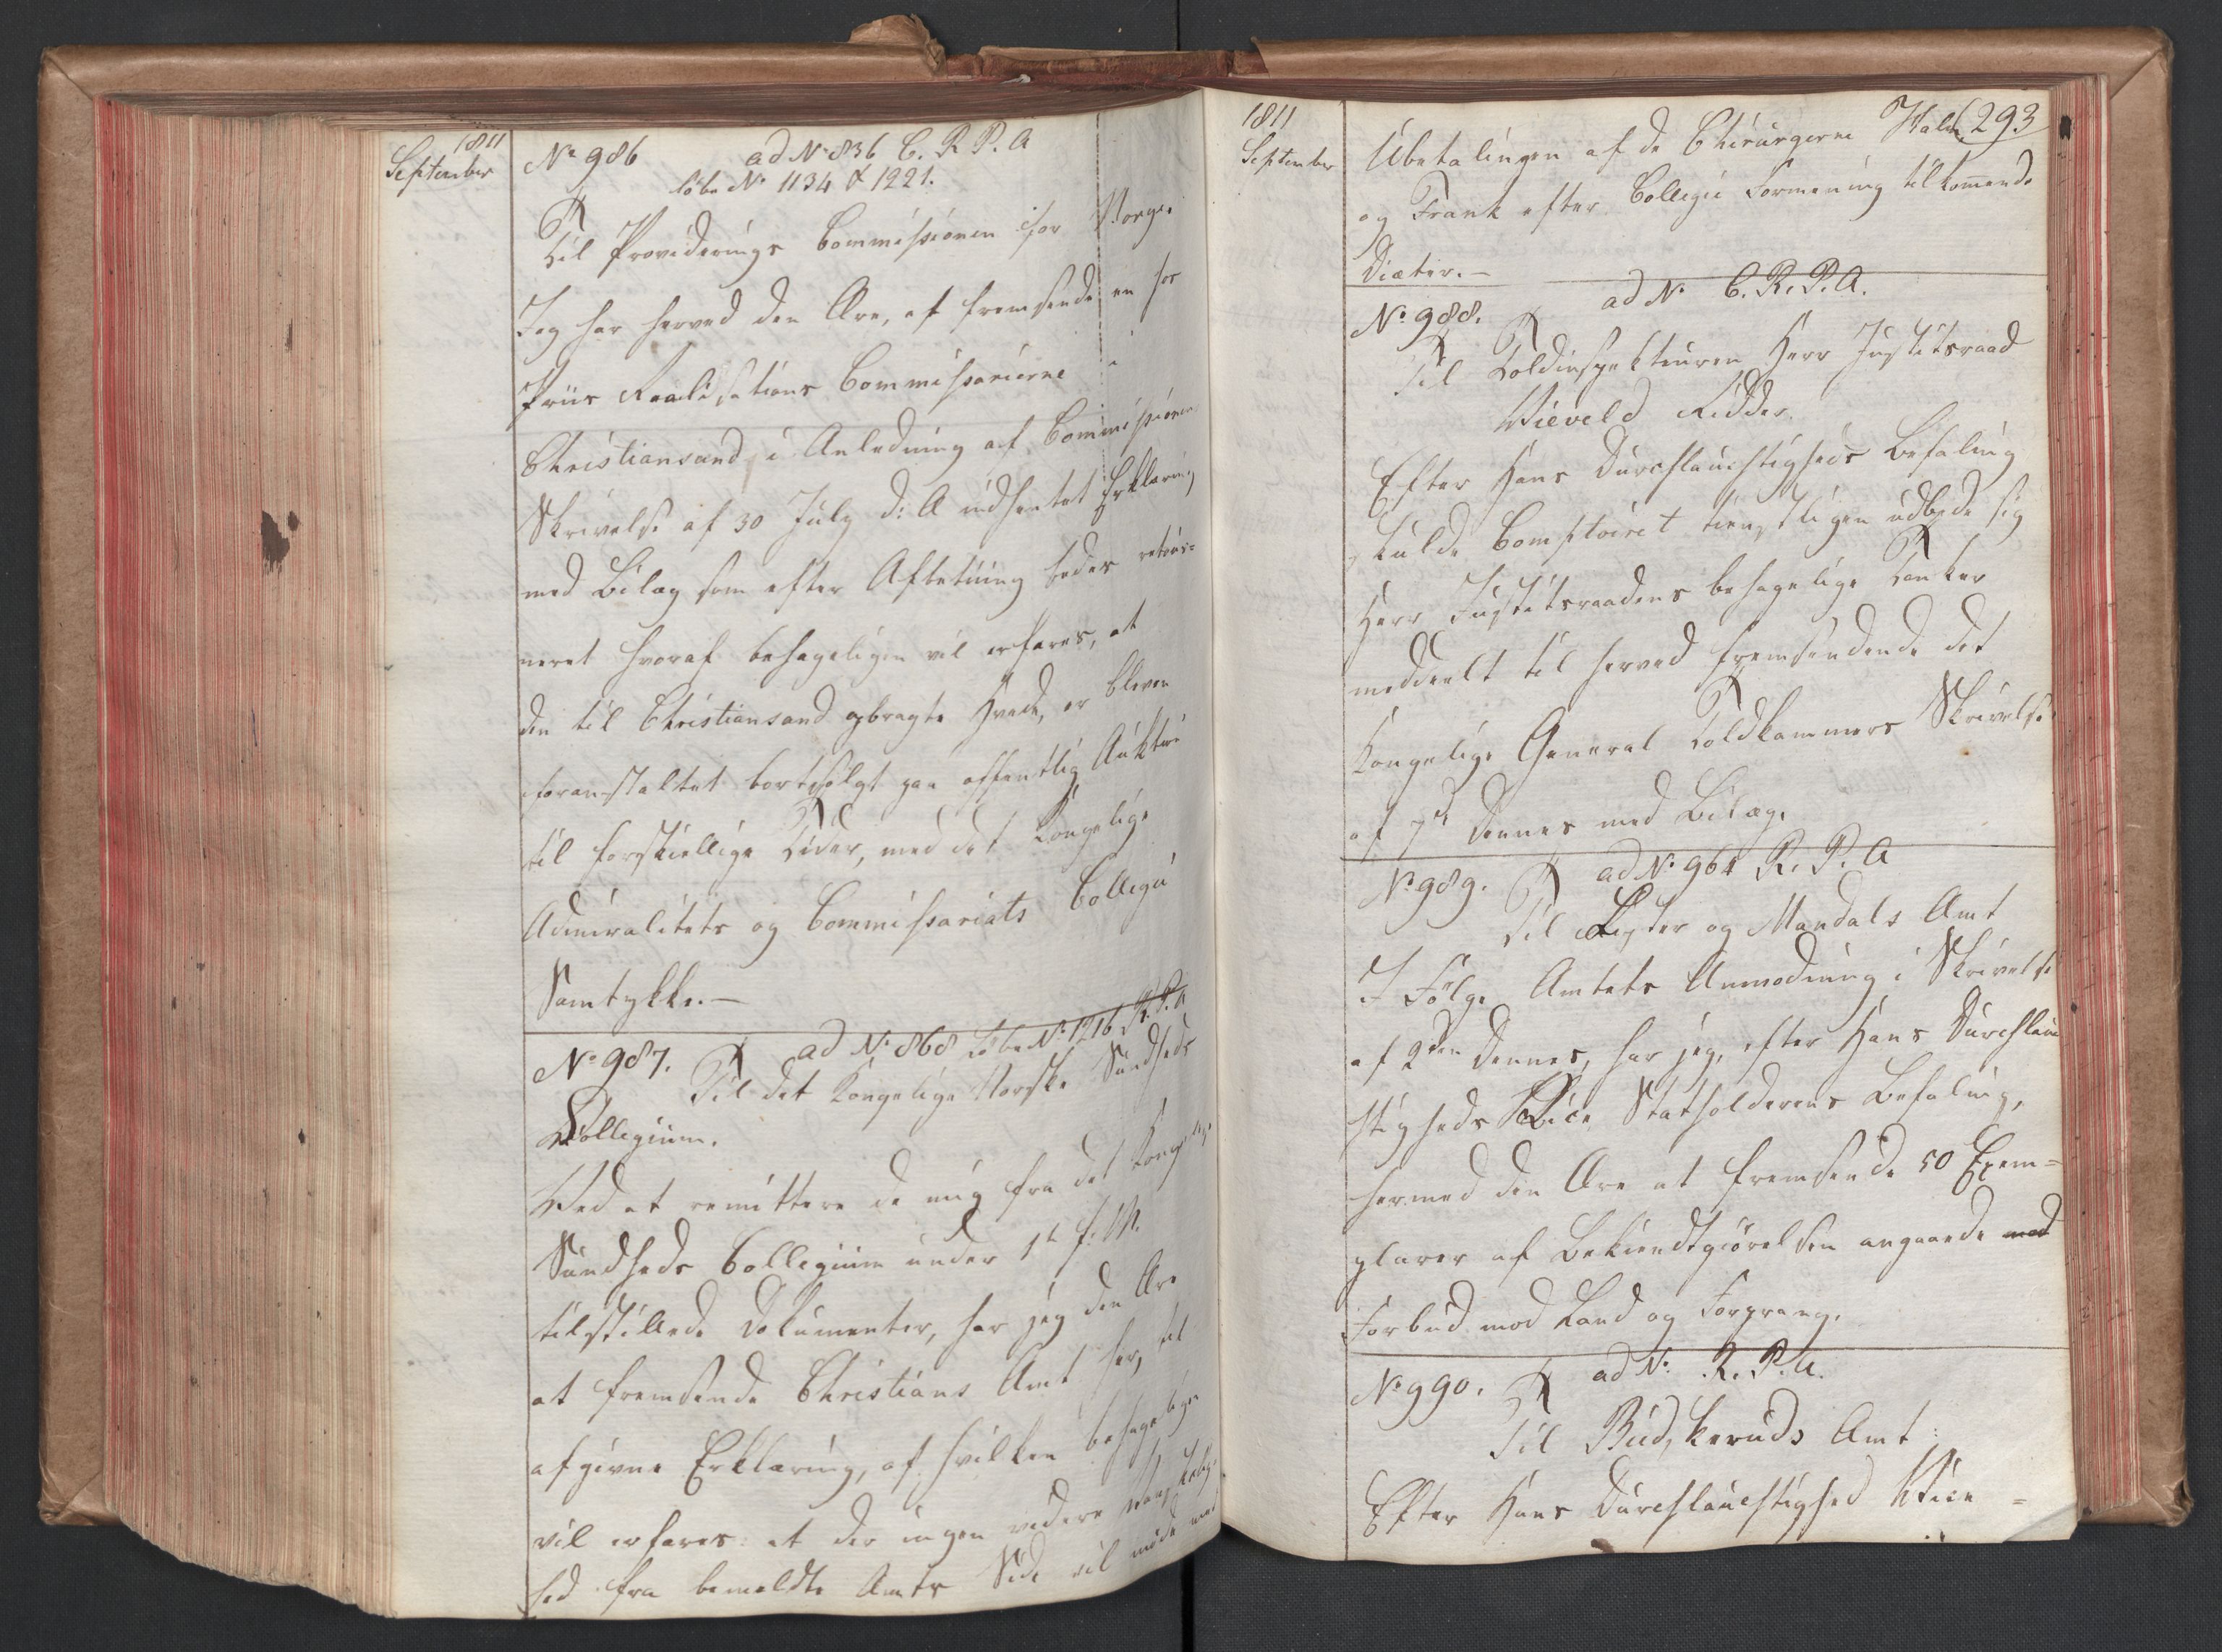 1811
September
No 986 ad No 836 C. R. P. A
løbe No 1134 & 1221.
Til Providerings Commissionen for Norge.
Jeg har herved den Ære, at fremsende en hos
Priis Realisations Commissarierne i
Christiansand i Anledning af Commissionens
Skrivelse af 30 July d: A indhentet Erklæring
med Bilag som efter Afbetning bedes retour=
neret hvoraf behageligen vil erfares, at
den til Christiansand opbragte Hvede, er bleven
foranstaltet bortsolgt paa offentlig Auktion
til forskiellige Tider, med det Kongelige
Admiralitets og Commissariats Collegii
Samtykke. —
No 987. ad No 868 Løbe No 1216 R. P. A
Til det Kongelige Norske Sundheds
Collegium.
Ved at remittere de mig fra det Kongelige
Sundheds Collegium under 1te f. M.
tilstillede Dokumenter, har jeg den Ære
at fremsende Christians Amt her, til
afgivne Erklæring, af hvilken behageligen
vil erfares: at der ingen videre
hed fra bemeldte Amts Side vil møde med
1811
September
293
Ubetalingen af de Chirurgerne
og Frank efter Collegii Formening tilkommende
Diæter. —
No 988. ad No C. R. P. A.
Til Toldinspekteuren Herr Justitsraad
Wieveld Ridder.
Efter Hans Durchlauchtigheds Befaling
skulde Comptoiret tienstligen udbede sig
Herr Justitsraadens behagelige Tanker
meddeelt til herved fremsendende det
Kongelige General Toldkammers Skrivelse
af 7de dennes med Bilag.
No 989. ad No 964 R. P. A
Til Lister og Mandals Amt
I Følge Amtets Anmodning i Skrivelse
af 2den dennes, har jeg, efter Hans Durchlauc
htigheds Vice Statholderens Befaling,
hermed den Ære at fremsende 50 Exem=
plarer af Bekiendtgiørelsen angaaende med
Forbud mod Land og Forprang.
No 990. ad No R. P. A.
Til Budskeruds Amt
Efter Hans Durchlauchtighed Vice =